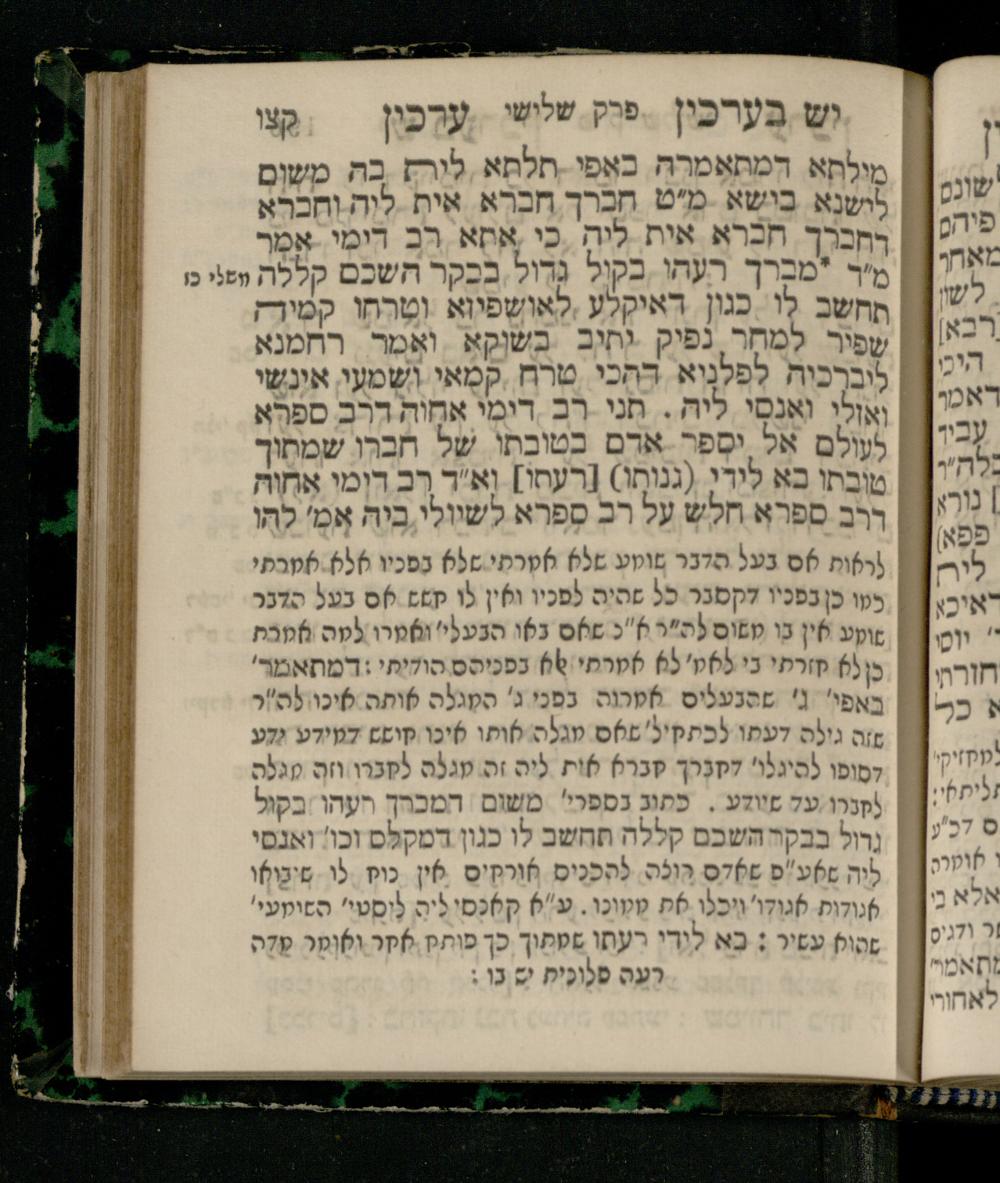 יש בערכין פרק שלישי ערכין קצו
מילתא דמתאמרה באפי תלתא לית בה משום
לישנא בישא מ״ט חברך חברא אית ליה וחברא
דחברך חברא אית ליה כי אתא רב דימי אמר
מ״ד *מברך רעהו בקול גדול בבקר השכם קללה
משלי כז
תחשב לו כגון דאיקלע לאושפיזא וטרחו קמיה
שפיר למחר נפיק יתיב בשוקא ואמר רחמנא
ליברכיה לפלניא דהכי טרח קמאי ושמעי אינשי
ואזלי ואנסי ליה . תני רב דימי אחוה דרב ספרא
לעולם אל יספר אדם בטובתו של חברו שמתוך
טובתו בא לידי (גנותו) [רעתו] וא״ד רב דימי אחוה
דרב ספרא חלש על רב ספרא לשיולי ביה אמ׳ להו
לראות אם בעל הדבר שומע שלא אמרתי שלא בפניו אלא אמרתי
כמו כן בפניו דקסבר כל שהיה לפניו ואין לו חשש אם בעל הדבר
שומע אין בו משום לה״ר א״כ שאם באו הבעלי׳ ואמרו למה אמרת
כן לא חזרתי בי לאמ׳ לא אמרתי אלא בפניהם הודיתי : דמתאמר׳
באפי׳ ג׳ שהבעלים אמרוה בפני ג׳ המגלה אותה אינו לה״ר
שזה גילה דעתו לכתחיל׳ שאם מגלה אותו אינו חושש דמידע ידע
דסופו להיגלו׳ דחברך חברא אית ליה זה מגלה לחברו וזה מגלה
לחברו עד שיודע . כתוב בספרי׳ משום דמברך רעהו בקול
גדול בבקר השכם קללה תחשב לו כגון דמקלם וכו׳ ואנסי
ליה שאע״פ שאדם רוצה להכניס אורחים אין כוח לו שיבואו
אגודות אגודו׳ ויכלו את ממונו . ע״א קאנסי ליה ליסטי׳ השומעי׳
שהוא עשיר : בא לידי רעתו שמתוך כך פותח אחר ואומר מדה
רעה פלונית יש בו :